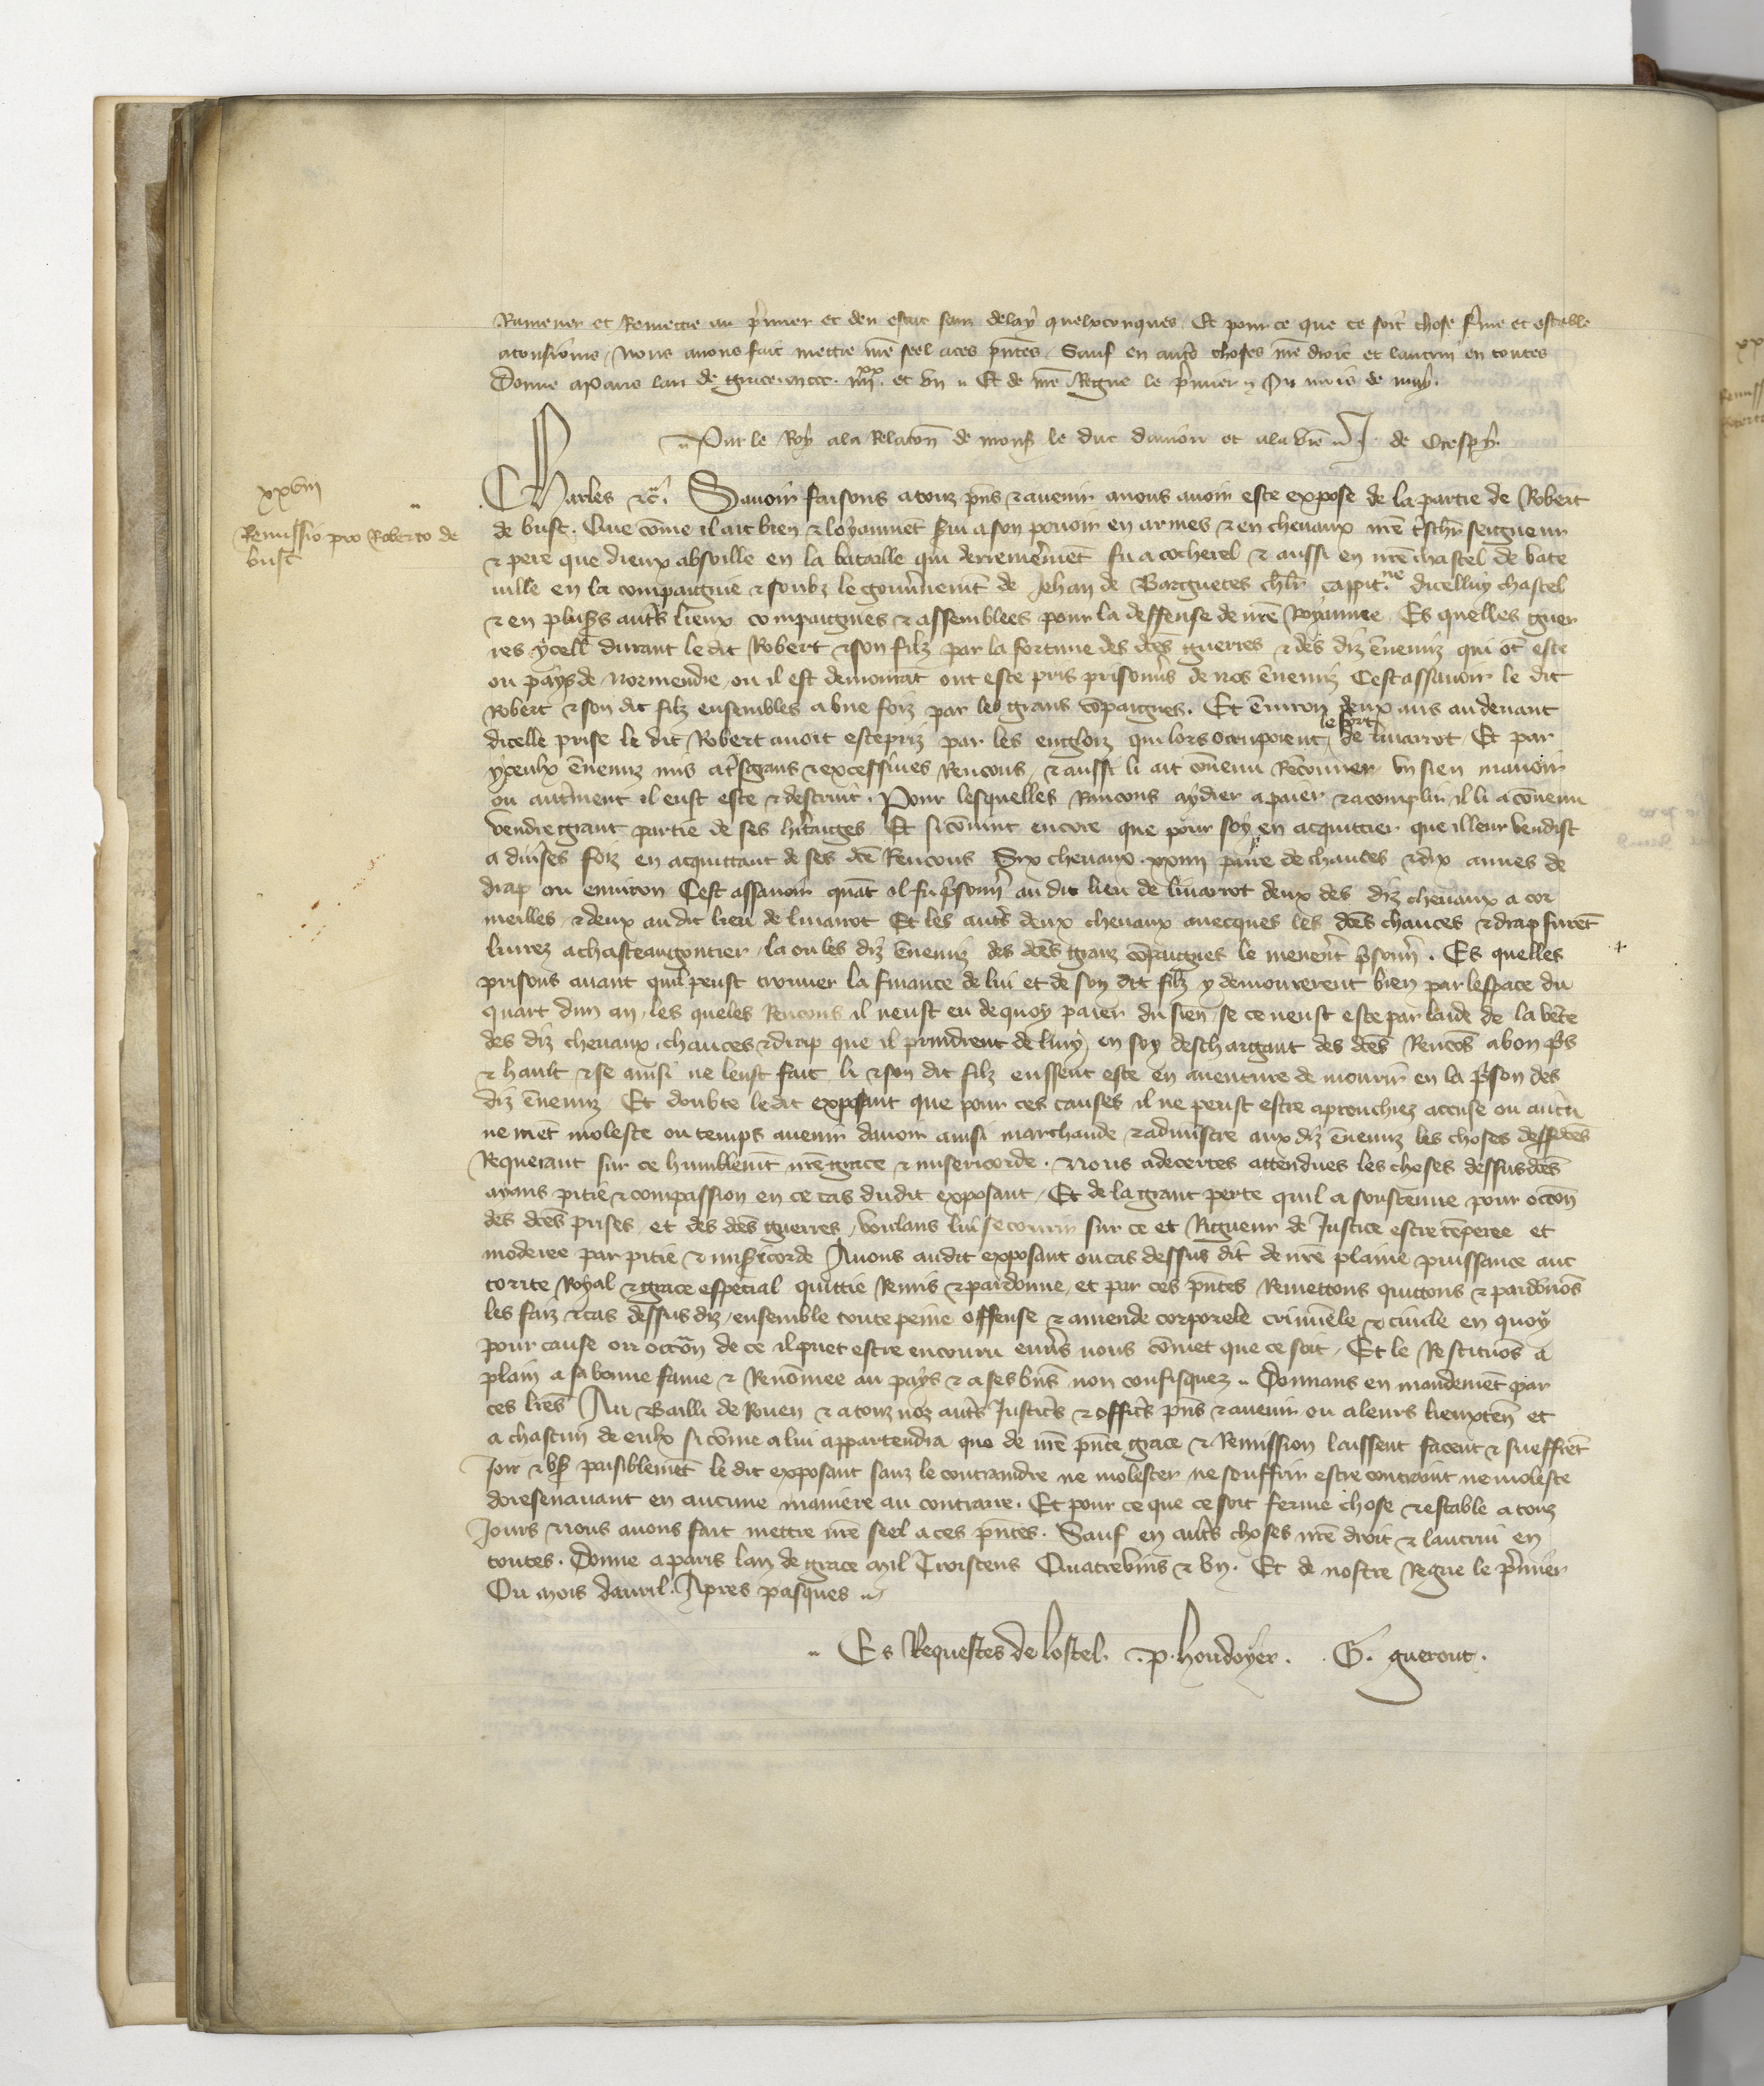 Ramener et Remettre au p̄mier et deu estat sanz delay quelxconques. Et pour ce que ce soit chose ferme et estable
a tousiours Nous auons fait mettre n̄re seel a ces p̄ntes Sauf en autres choses n̄re droit et lautrui en toutes
Donne a paris lan de grace mil ccc. iiiixx et vn Et de n̄re Regne le p̄mier Ou mois de may.
Par le Roy a la Relacōn de mons le duc daniou et a la v̄re J. de Crespy.
xxviii
Remissio pro Roberto de
bust
Charles &c̄. Sauoir faisons a touz p̄ns & auenir a nous auoir este expose de la partie de Robert
de bust. Que cōme il ait bien & loyaumēt s̄ui a son pouoir en armes & en cheuaux n̄re t̄sch̄r seigneur
& pere que dieux absoille en la bataille qui derrenierem̄et fu a cocherel & aussi en n̄re chastel de bate
uille en la compaignie & soubz le gouūnement de Jehan de Barguetes ch̄lr cappit.ne dicelluy chastel
& en plus̄s aut̄s lieux compaignes & assemblees pour la deffense de n̄re Royaume. Es quelles guer
res ycell durant le dit Robert & son filz par la fortune des dc̄es guerres & des diz ēnemiz qui ōt este
ou pays de Normendie ou il est demourāt ont este pris prisonn̄s de nos ēnemiz Cest assauoir le dit
Robert & son dit filz ensembles a vne foiz par les grans cōpaignes. Et ēuiron deux ans au deuant
dicelle prise le dit Robert auoit este priz par les engloiz qui lors occupoient le fort de liuarrot Et par
yceulx ēnemiz mis a t̄sgrans & excessiues Rencons & aussi li ait cōuenu Rēconner vn sien manoir
ou aut̄ment il eust este & destruit. Pour lesquelles Rancons aydier a paier & acomplir il li a cōuenu
vendre grant partie de ses h̄itaiges Et si cōuint encore que pour soy en acquittier que il leur vendist
a diūses foiz en acquittant de ses dc̄e Rencons Six cheuaux xxiiii paire de chauces & dix aunes de
drap ou enuiron Cest assauoir quāt il fu p̄sonn̄ au dit lieu de liuarrot deux des diz cheuaux a cor
meilles & deux au dit lieu de liuarrot Et les aut̄s deux cheuaux auecques les dc̄es chauces & drap furēt
liurez a chasteaugontier la ou les diz ēnemiz des dc̄es granz cōpaignes le menerēt p̄sonn̄. Es quelles
prisons auant quil peust trouuer la finance de lui et de son dit filz y demourerent bien par lespace du
quart dun an les queles Rencons il neust eu de quoy paier du sien se ce neust este par laide de la vēte
des diz cheuaux chauces & drap que il prindrent de luy en soy deschargant des dc̄es Rencōs a bon p̄s
& hault & se ainsi ne leust fait li & son dit filz eussent este en auenture de mourir en la p̄son des
diz ēnemiz Et doubte le dit exposant que pour ces causes il ne peust estre aprouchiez accuse ou aucu
nemēt moleste ou temps auenir dauoir ainsi marchande & admistre aux diz ēnemiz les choses dess̄dc̄es
Requerant sur ce humblemēt n̄re grace & misericorde. Nous adecertes attendues les choses dessusdc̄es
ayans pitie & compassion en ce cas dudit exposant Et de la grant perte quil a soustenue pour occōn
des dc̄es prises et des dc̄es guerres voulans lui secourir sur ce et Rigueur de Justice estre tēperee et
moderee par pitie & mis̄icorde Auons audit exposant ou cas dessus dit de n̄re plaine puissance auc
torite Royal & grace especial quittie Remis & pardonne et par ces p̄ntes Remettons quittons & pardōnōs
les faiz & cas dessus diz ensemble toute peine offense & amende corporele criminele & ciuile en quoy
pour cause ou occōn de ce il puet estre encouru enūs nous cōmet que ce soit Et le Restituōs a
plain a sa bonne fame & Renōmee au pays & a ses b̄ns non confisquez Donnans en mandemēt par
ces l̄res Au Bailli de Rouen & a touz noz aut̄s Justic̄s & offic̄s p̄ns & auenir ou a leurs lieuxten̄ et
a chascun de eulx si cōme a lui appartendra que de n̄re p̄nte grace & Remission laissent facent & sueffrēt
Joir & vs̄ paisiblemēt le dit exposant sanz le contraindre ne molester ne souffrir estre contraint ne moleste
doresenauant en aucune maniere au contraire. Et pour ce que ce soit ferme chose & estable a touz
Jours Nous auons fait mettre n̄re seel a ces p̄ntes. Sauf en aut̄s choses n̄re droit & lautrui en
toutes. Donne a paris lan de grace mil Troiscens Quatrevins & vn. Et de nostre Regne le p̄mier
Ou mois dauril. Apres pasques
Es Requestes de lostel. p. houdoyer. G. guerout.